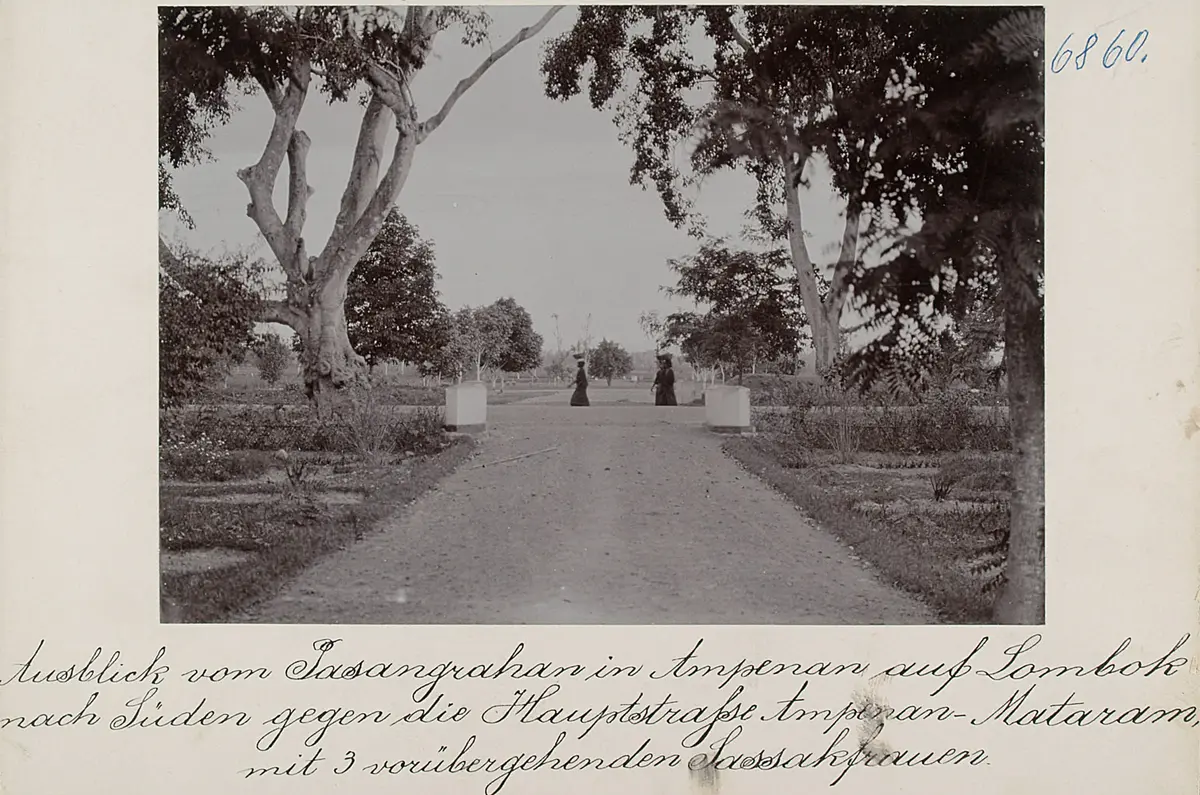 6860.
Ausblick vom Pasangrahan in Ampenan auf Lombok
nach Süden gegen die Hauptstraße Ampenan-Mataram,
mit 3 vorübergehenden Sassakfrauen.